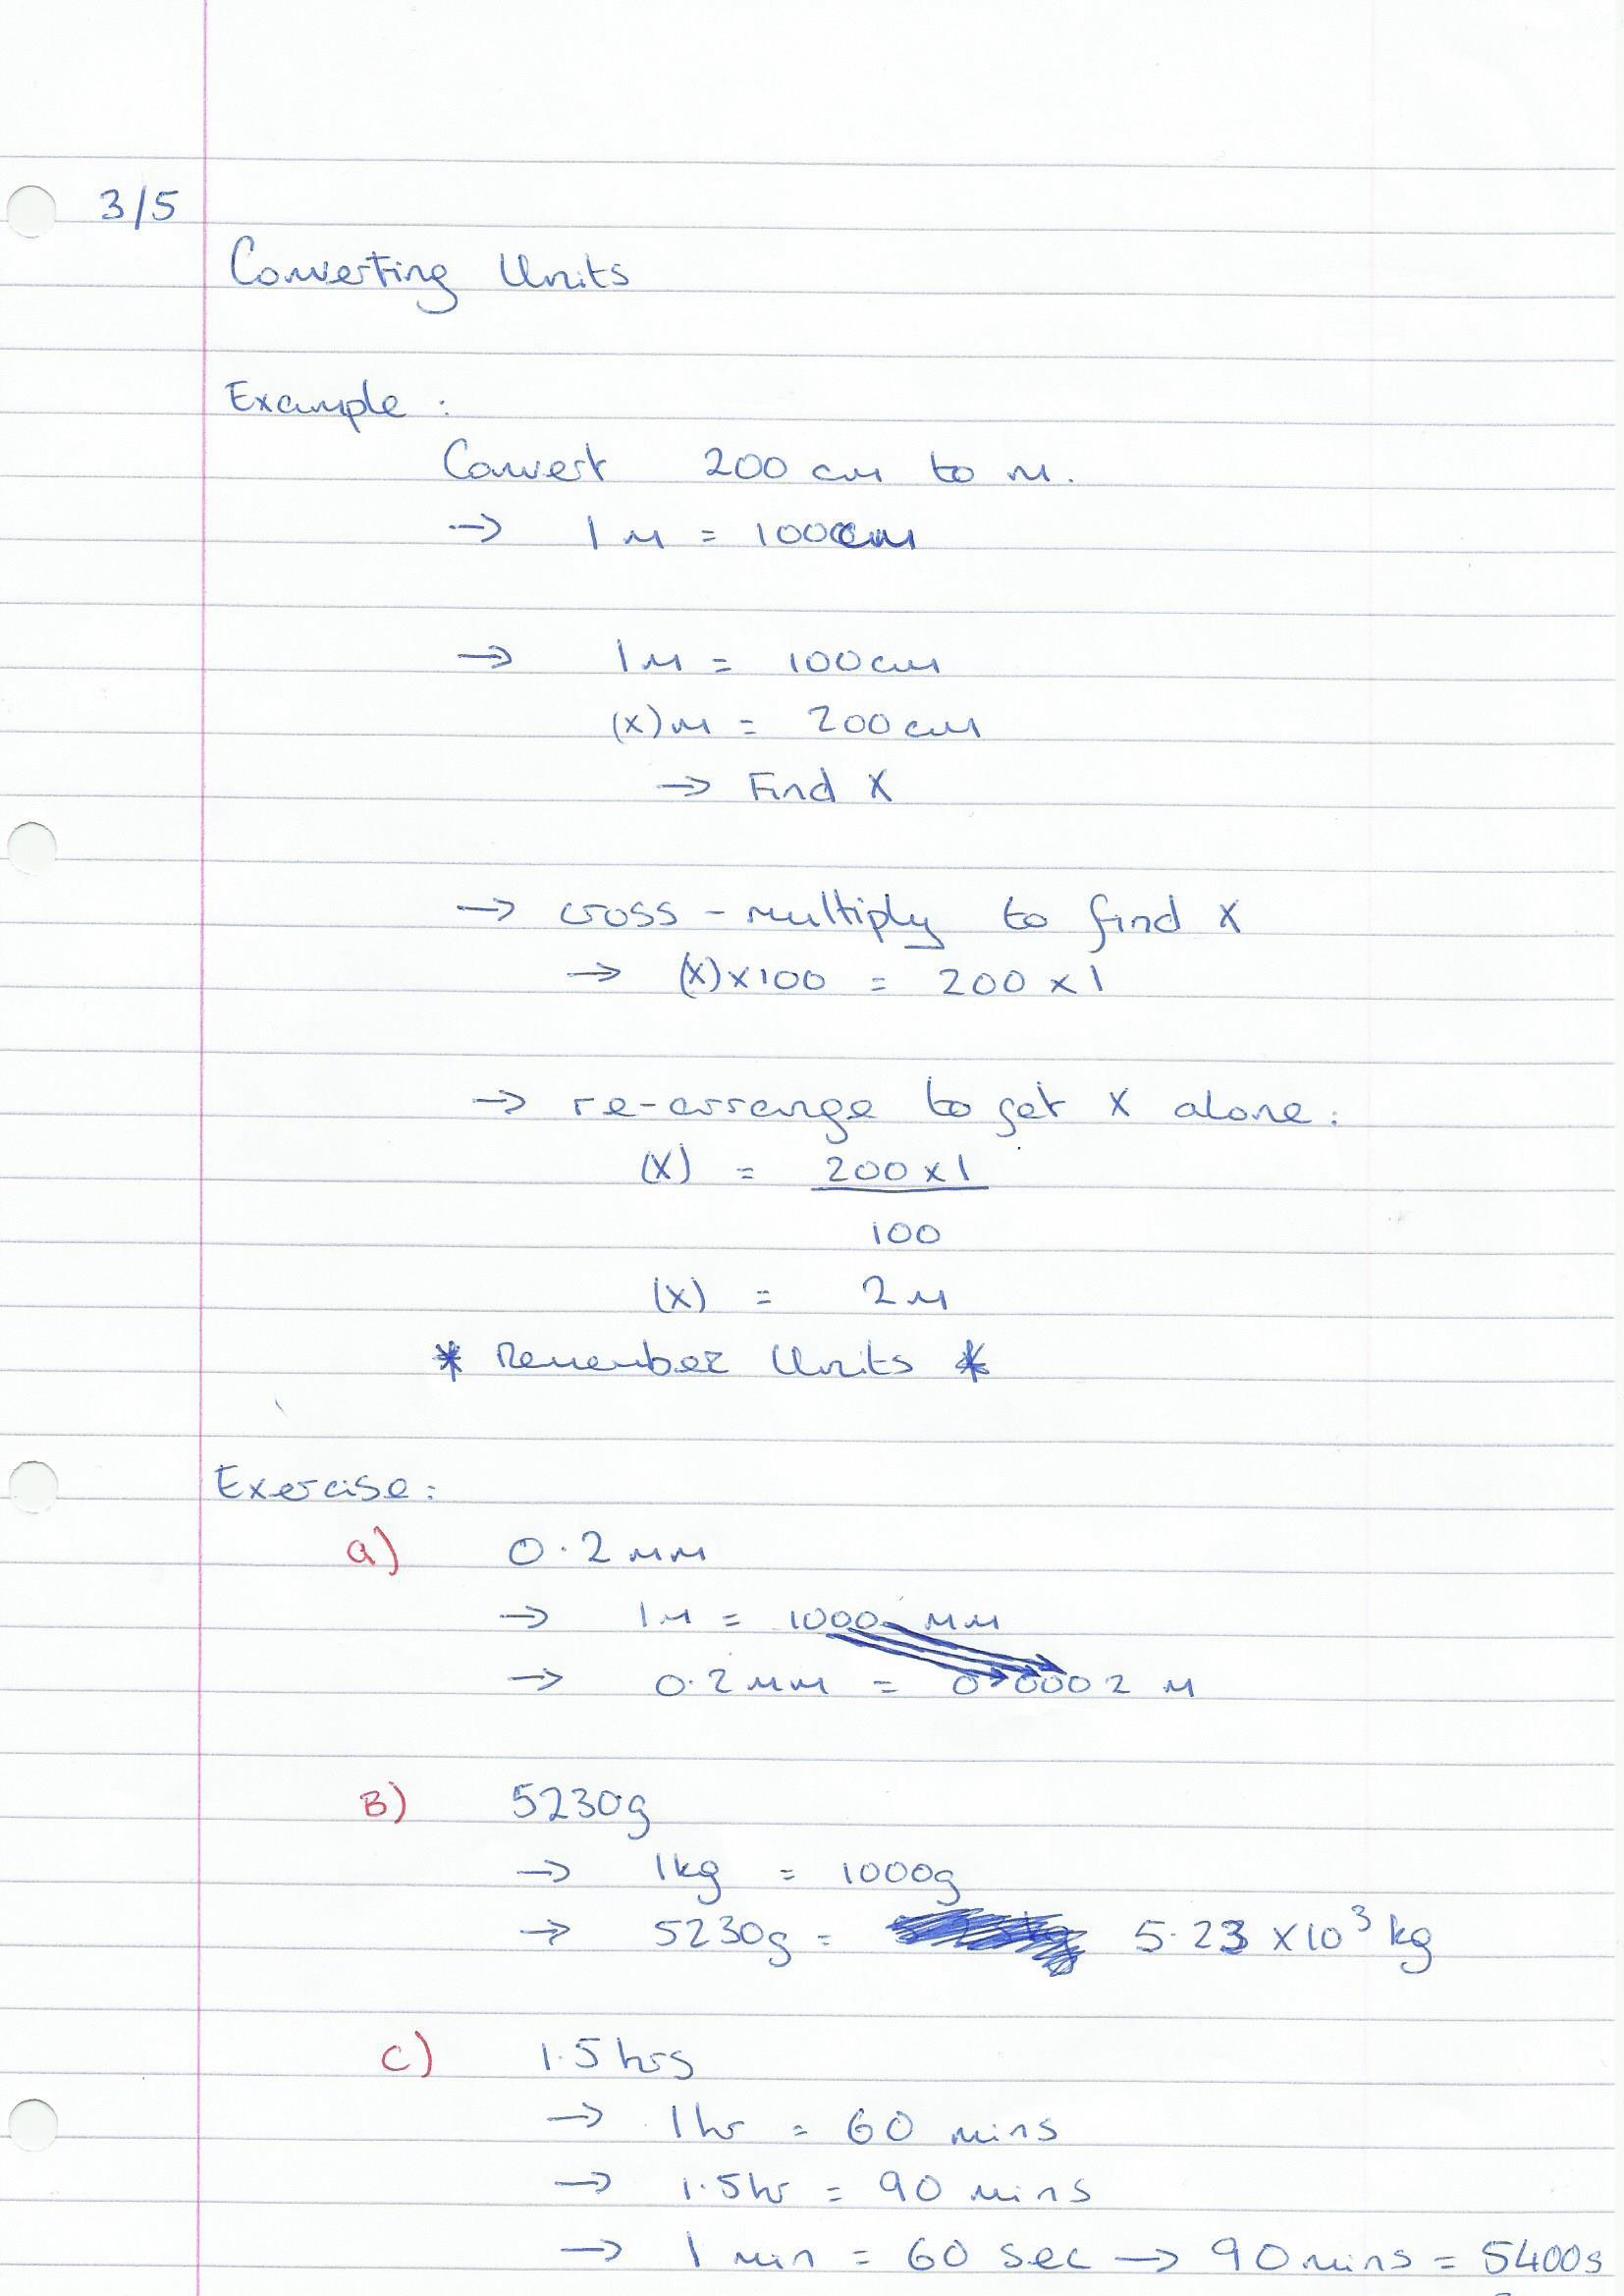 3/5
Converting Units
Example :
Convert 200 cm to m.
→ 1 m = 100cm
→ 1m = 100cm
(x)m = 200cm
→ Find x
→ cross-multiply to find x
→ (x)x100 = 200 x 1
→ re-arrange to get x alone:
(x) = 200 x 1
100
(x) = 2m
* Remember Units *
Exercise:
a) 0.2mm
→ 1m = 1000 mm
→ 0.2mm = 0.0002 m
B) 5230g
→ 1kg = 1000g
→ 5230g = 5.23 x10³ kg
c) 1.5hrs
→ 1hr = 60 mins
→ 1.5hr = 90 mins
→ 1 min = 60 sec → 90mins = 5400s